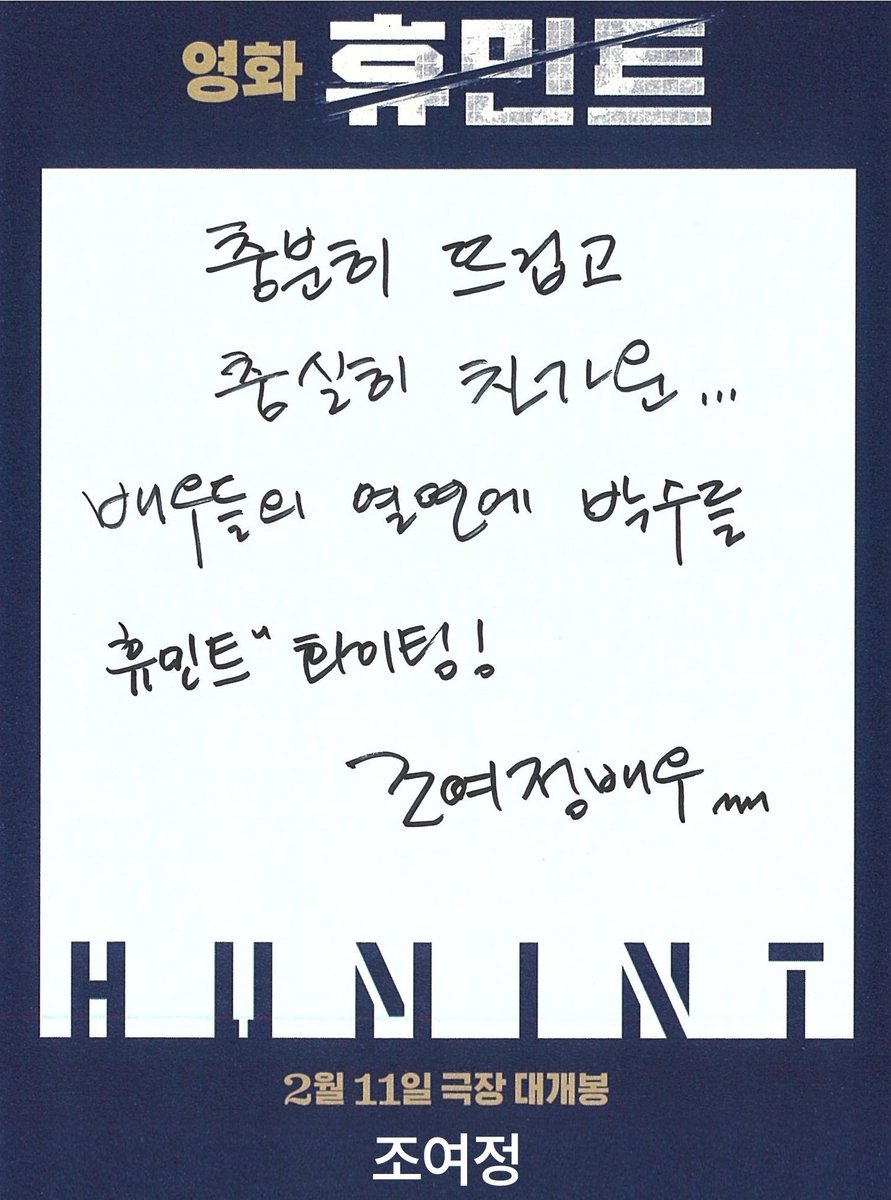 영화 휴민트
충분히 뜨겁고
충실히 차가운...
배우들의 열연에 박수를
휴민트" 화이팅!
조여정배우
HUMINT
2월 11일 극장 대개봉
조여정